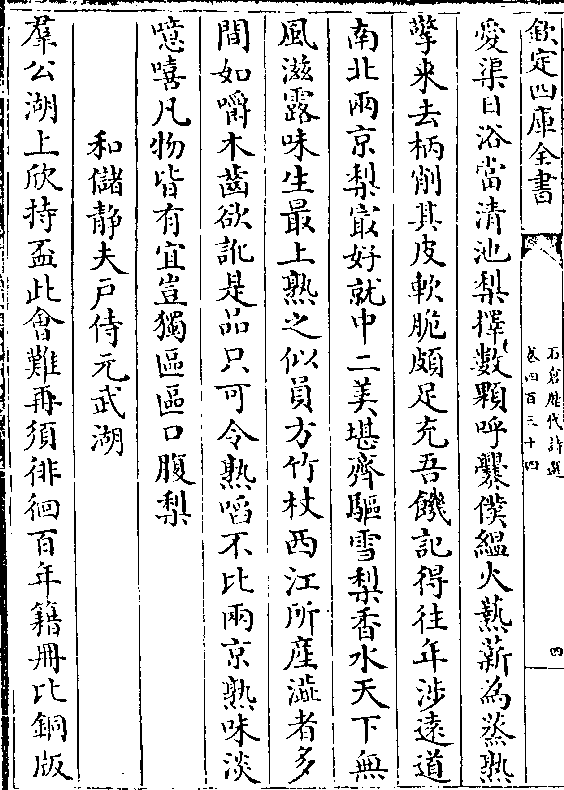 欽定四庫全書
石倉歷代詩選
卷四百三十四
四
愛渠日浴當清池梨擇數顆呼爨僕緼火爇薪為蒸熟
擎來去柄削其皮軟脆頗足充吾饑記得往年涉遠道
南北兩京梨㝡好就中二美堪齊驅雪梨香水天下無
風滋露味生最上熟之似員方竹杖西江所産澁者多
間如嚼木齒欲訛是品只可令熟㗖不比兩京熟味淡
噫嘻凡物皆有宜豈獨區區口腹梨
和儲静夫戸侍元武湖
羣公湖上欣持盃此會難再須徘徊百年籍冊比銅版